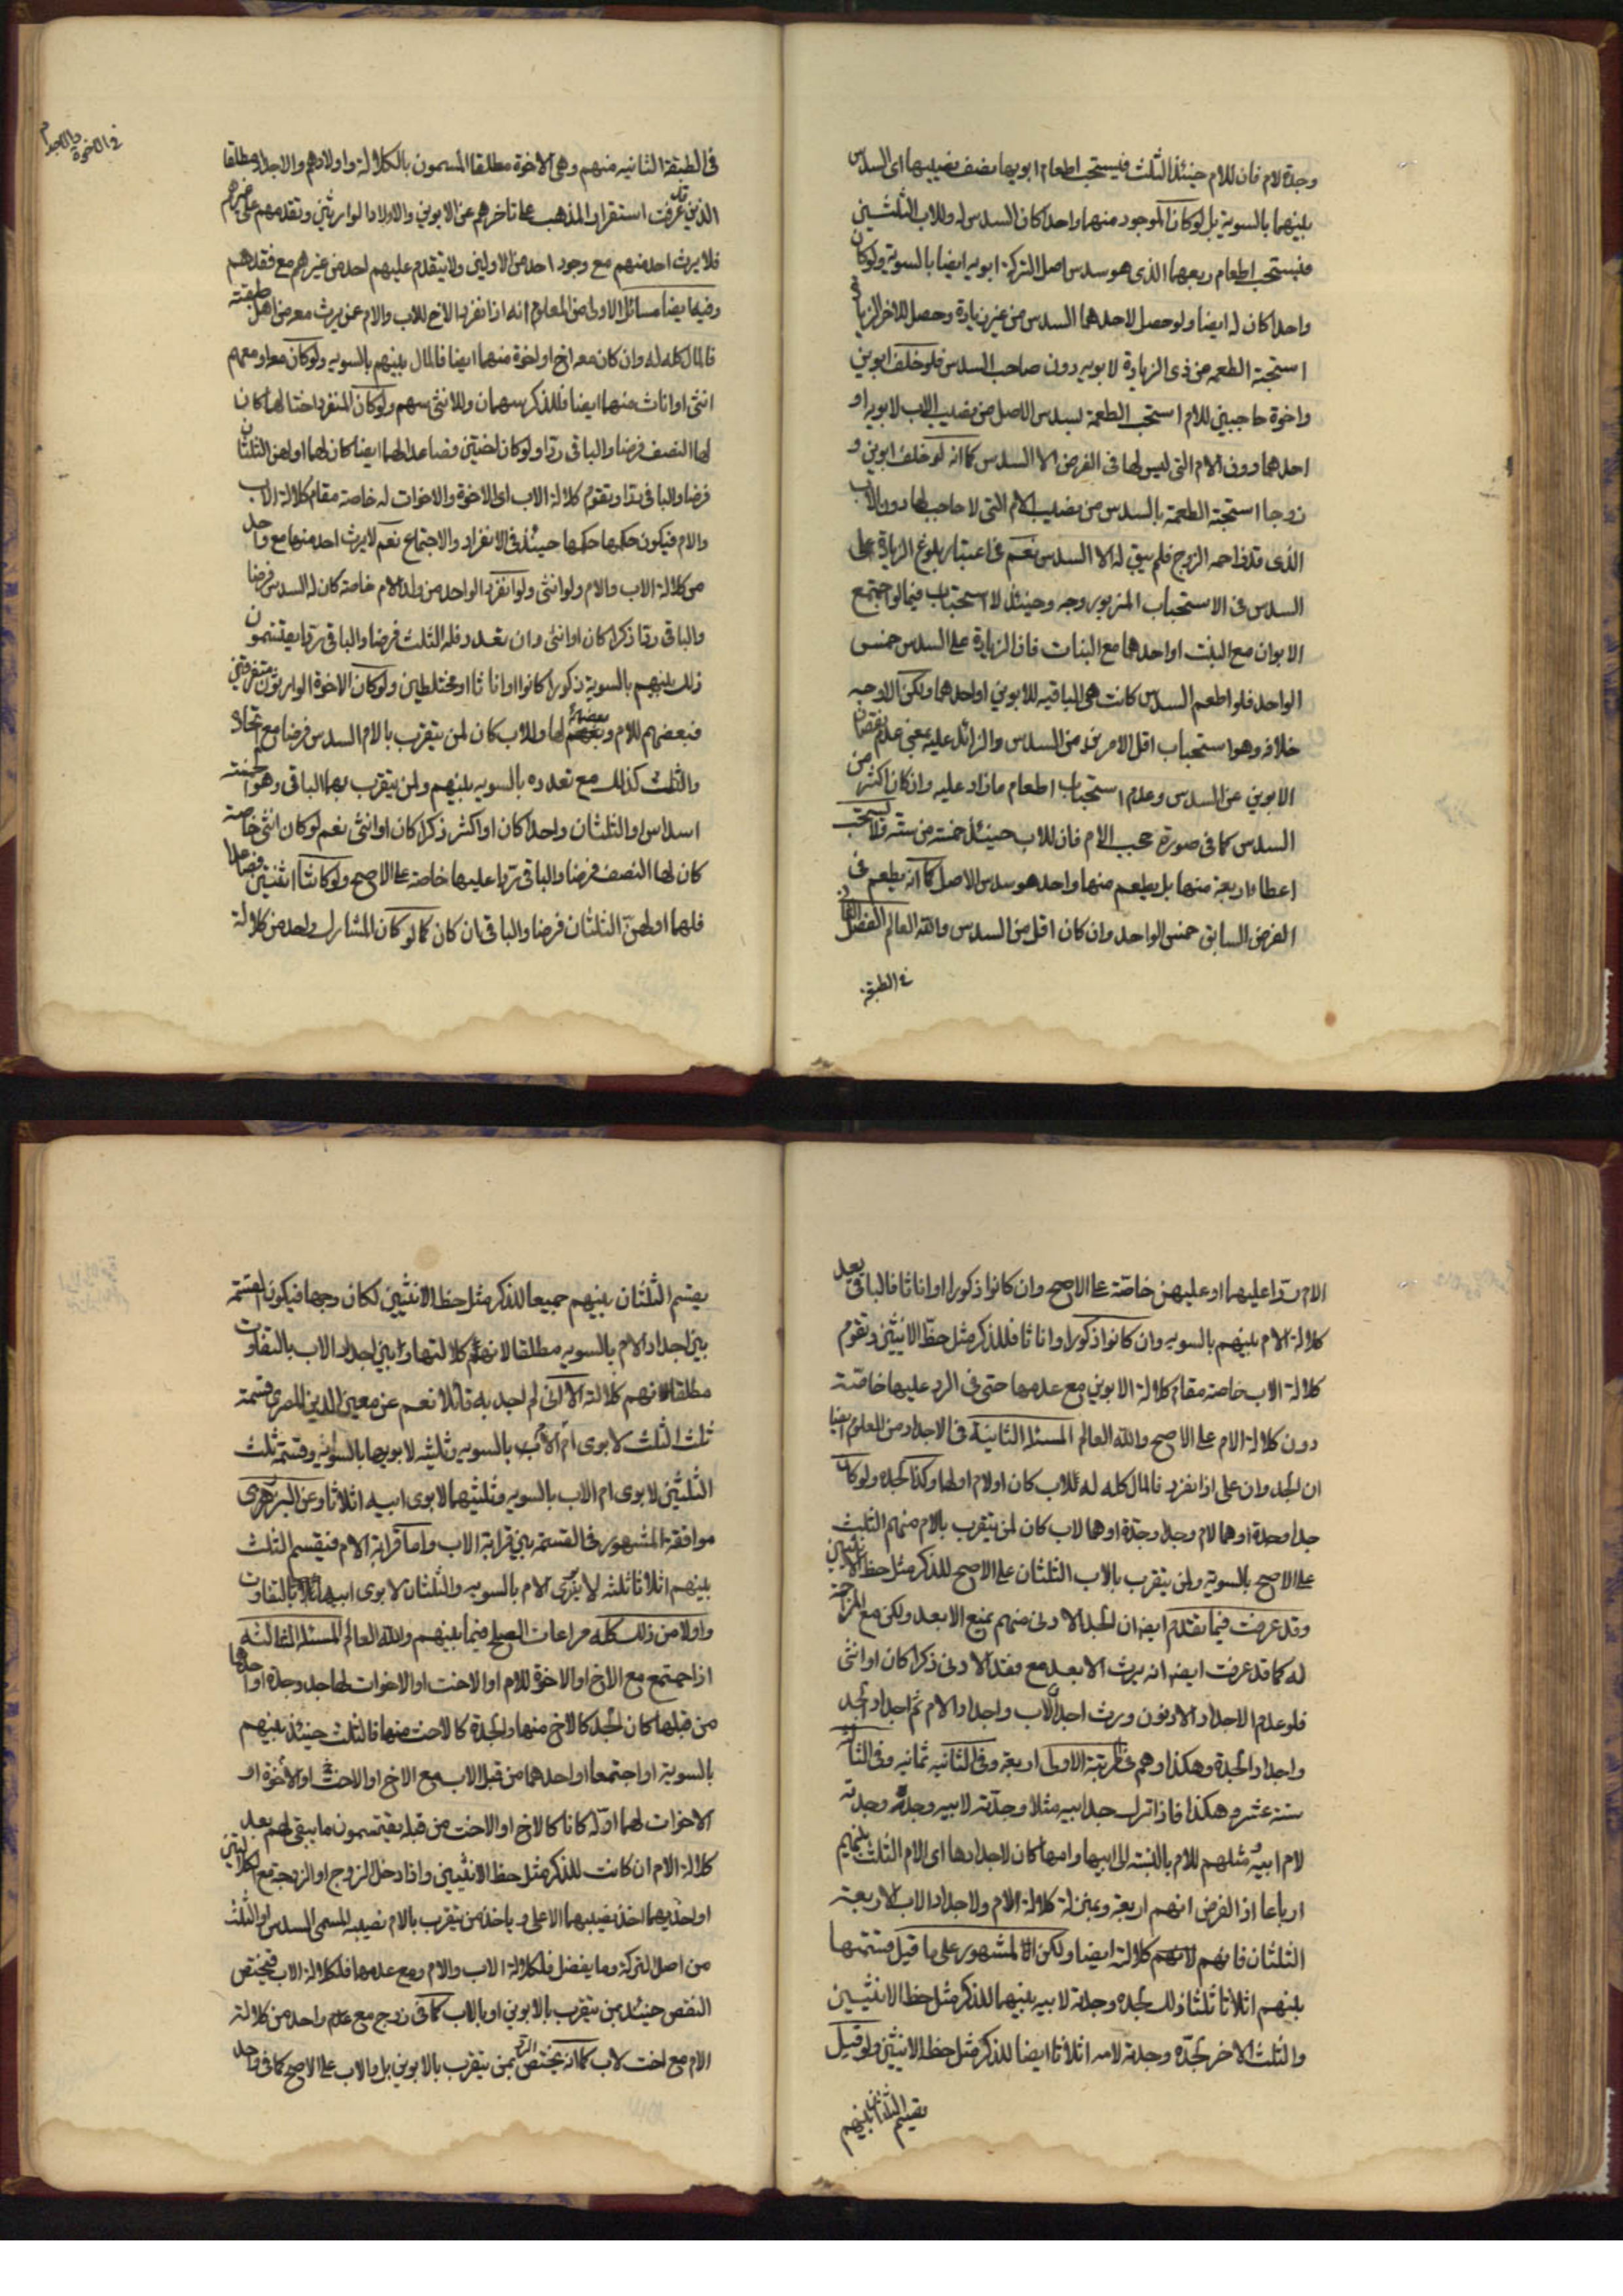 وجدة لام فان للام حينئذ الثلث فيستحب اطعام ابويها نصف نصيبها اى السدس
بينهما بالسوية بل لو كان الموجود منهما واحدا كان السدس له وللاب الثلثين
فيستحب اطعام ربعهما الذى هو سدس اصل التركة ابويه ايضا بالسوية ولو كان
واحدا كان له ايضا ولو حصل لاحدهما السدس من غير زيادة وحصل للاخر الزيادة
استحبت الطعمه من ذى الزيادة لابويه دون صاحب السدس فلو خلف ابوين
واخوة حاجبين للام استحب الطعمة بسدس الاصل من نصيب الاب لابويه او
احدهما دون الام التى ليس لها فى الفرض الا السدس كما انه لو خلف ابوين و
زوجا استحبت الطعمة بالسدس من نصيب الام التى لا حاجب لها دون الاب
الذى قد زاحمه الزوج فلم يبق له الا السدس نعم فى اعتبار بلوغ الزيادة على
السدس فى الاستحباب المزبور وجه وحينئذ لا استحباب فيما لو اجتمع
الابوان مع البنت او احدهما مع البنات فان الزيادة على السدس خمس
الواحد فلو اطعم السدس كانت هى الباقيه للابوين او احدهما ولكن الاوجه
خلافه وهو استحباب اقل الامرين من السدس والزائد عليه بمعنى عدم نقصان
الابوين عن السدس وعدم استحباب اطعام ما زاد عليه وان كان اكثر من
السدس كما فى صورة حجب الام فان للاب حينئذ خمسة من ستة فلا يستحب
اعطاء اربعة منها بل يطعم منها واحد هو سدس الاصل كما انه يطعم فى
الفرض السابق خمس الواحد وان كان اقل من السدس والله العالم الفصل الثانى
فى الطبقة
فى الاخوة والاجداد
فى الطبقة الثانيه منهم وهى الاخوة مطلقا المسمون بالكلالة واولادهم والاجداد مطلقا
الذين قد عرفت استقرار المذهب على تاخرهم عن الابوين والاولاد الوارثين وتقدمهم على غيرهم
فلا يرث احد منهم مع وجود احد من الاولين ولا يتقدم عليهم احد من غيرهم مع فقدهم
وفيها ايضا مسائل الاولى من المعلوم انه اذا انفرد الاخ للاب والام عمن يرث معه من اهل طبقته
فالمال كله له وان كان معه اخ او اخوة منهما ايضا فالمال بينهم بالسويه ولو كان معه او معهم
انثى او اناث منهما ايضا فللذكر سهمان وللانثى سهم ولو كان المنفرد اختا لهما كان
لها النصف فرضا والباقى ردا ولو كان اختين فصاعدا لهما ايضا كان لهما او لهن الثلثان
فرضا والباقى ردا وتقوم كلالة الاب اى الاخوة والاخوات له خاصة مقام كلالة الاب
والام فيكون حكمها حكمها حينئذ فى الانفراد والاجتماع نعم لا يرث احد منها مع واحد
من كلالة الاب والام ولو انثى ولو انفرد الواحد من ولد الام خاصة كان له السدس فرضا
والباقى ردا ذكرا كان او انثى وان تعدد فله الثلث فرضا والباقى ردا يقتسمون
ذلك بينهم بالسوية ذكورا كانوا او اناثا او مختلطين ولو كان الاخوة الوارثون متفرقين
فبعضهم للام وبعضهم لها وللاب كان لمن يتقرب بالام السدس فرضا مع اتحاده
والثلث كذلك مع تعدده بالسويه بينهم ولمن يتقرب بهما الباقى وهو خمسة
اسداس او الثلثان واحدا كان او اكثر ذكرا كان او انثى نعم لو كان انثى خاصة
كان لها النصف فرضا والباقى ردا عليها خاصة على الاصح ولو كانتا اثنتين فصاعدا
فلهما او لهن الثلثان فرضا والباقى ان كان كما لو كان المشارك واحد من كلالة
الام ردا عليهما او عليهن خاصة على الاصح وان كانوا ذكورا او اناثا فالباقى بعد
كلالة الام بينهم بالسويه وان كانوا ذكورا واناثا فللذكر مثل حظ الانثيين وتقوم
كلالة الاب خاصة مقام كلالة الابوين مع عدمها حتى فى الرد عليها خاصة
دون كلالة الام على الاصح والله العالم المسئلة الثانية فى الاجداد من المعلوم ايضا
ان الجد وان على اذا انفرد فالمال كله له للاب كان او لام او لهما وكذا الجدة ولو كان
جدا وجدة او هما لام وجد وجدة او هما لاب كان لمن يتقرب بالام منهم الثلث
على الاصح بالسوية ولمن يتقرب بالاب الثلثان على الاصح للذكر مثل حظ الانثيين
وقد عرفت فيما تقدم ايضا ان الجد الادنى منهم يمنع الابعد ولكن مع المزاحمة
له كما قد عرفت ايضا انه يرث الابعد مع فقد الادنى ذكرا كان او انثى
فلو عدم الاجداد الادنون ورث اجداد الاب واجداد الام ثم اجداد الجد
واجداد الجدة وهكذا وهم فى المرتبة الاولى اربعة وفى الثانيه ثمانيه وفى الثالثة
ستة عشر وهكذا فاذا ترك جد ابيه مثلا وجدته لابيه وجده وجدته
لام ابيه ومثلهم للام بالنسبة الى ابيها وامها كان لاجدادها اى الام الثلث بينهم
ارباعا اذ الفرض انهم اربعة وبمنزلة كلالة الام ولاجداد الاب الاربعة
الثلثان فانهم لانهم كلالة ايضا ولكن المشهور على ما قيل قسمتها
بينهم اثلاثا ثلثا ذلك لجده وجدته لابيه بينهما للذكر مثل حظ الانثيين
والثلث الاخر لجده وجدته لامه اثلاثا ايضا للذكر مثل حظ الانثيين ولو قيل
تقسيم الثلثان بينهم
يقسم الثلثان بينهم جميعا للذكر مثل حظ الانثيين لكان وجها فيكون القسمة
بين اجداد الام بالسويه مطلقا لانهم كلالتها وبين اجداد الاب بالتفاوت
مطلقا لانهم كلالة الا انى لم اجد به قائلا نعم عن معين الدين المصرى قسمة
ثلث الثلث لابوى ام الام بالسويه وثلثيه لابويها بالسويه وقسمة ثلث
الثلثين لابوى ام الاب بالسويه وثلثيهما لابوى ابيه اثلاثا وعن البرزهى
موافقة المشهور فى القسمة بين قرابة الاب واما قرابة الام فيقسم الثلث
بينهم اثلاثا ثلثه لابوى الام بالسويه والثلثان لابوى ابيها بالتفاوت
واولى من ذلك كله مراعات الصلح فيما بينهم والله العالم المسئلة الثالثه
اذا اجتمع مع الاخ او الاخوة للام او الاخت او الاخوات لها جد وجدة او احدهما
من قبلها كان الجد كالاخ منها والجدة كالاخت منها فالثلث حينئذ بينهم
بالسوية او اجتمعا او احدهما من قبل الاب مع الاخ او الاخت او الاخوة او
الاخوات لهما او له كانا كالاخ او الاخت من قبله يقتسمون ما يبقى لهم بعد
كلالة الام ان كانت للذكر مثل حظ الانثيين واذا دخل الزوج او الزوجة مع الكلالتين
او احديهما اخذ نصيبهما الاعلى وياخذ من يتقرب بالام نصيبه المسمى السدس او الثلث
من اصل التركة وما يفضل فلكلالة الاب والام ومع عدمها فلكلالة الاب فيختص
النقص حينئذ بمن يتقرب بالابوين او بالاب كما فى زوج مع عدم واحد من كلالة
الام مع اخت لاب كما انه يختص الرد بمن يتقرب بالابوين بل والاب على الاصح كما فى واحد